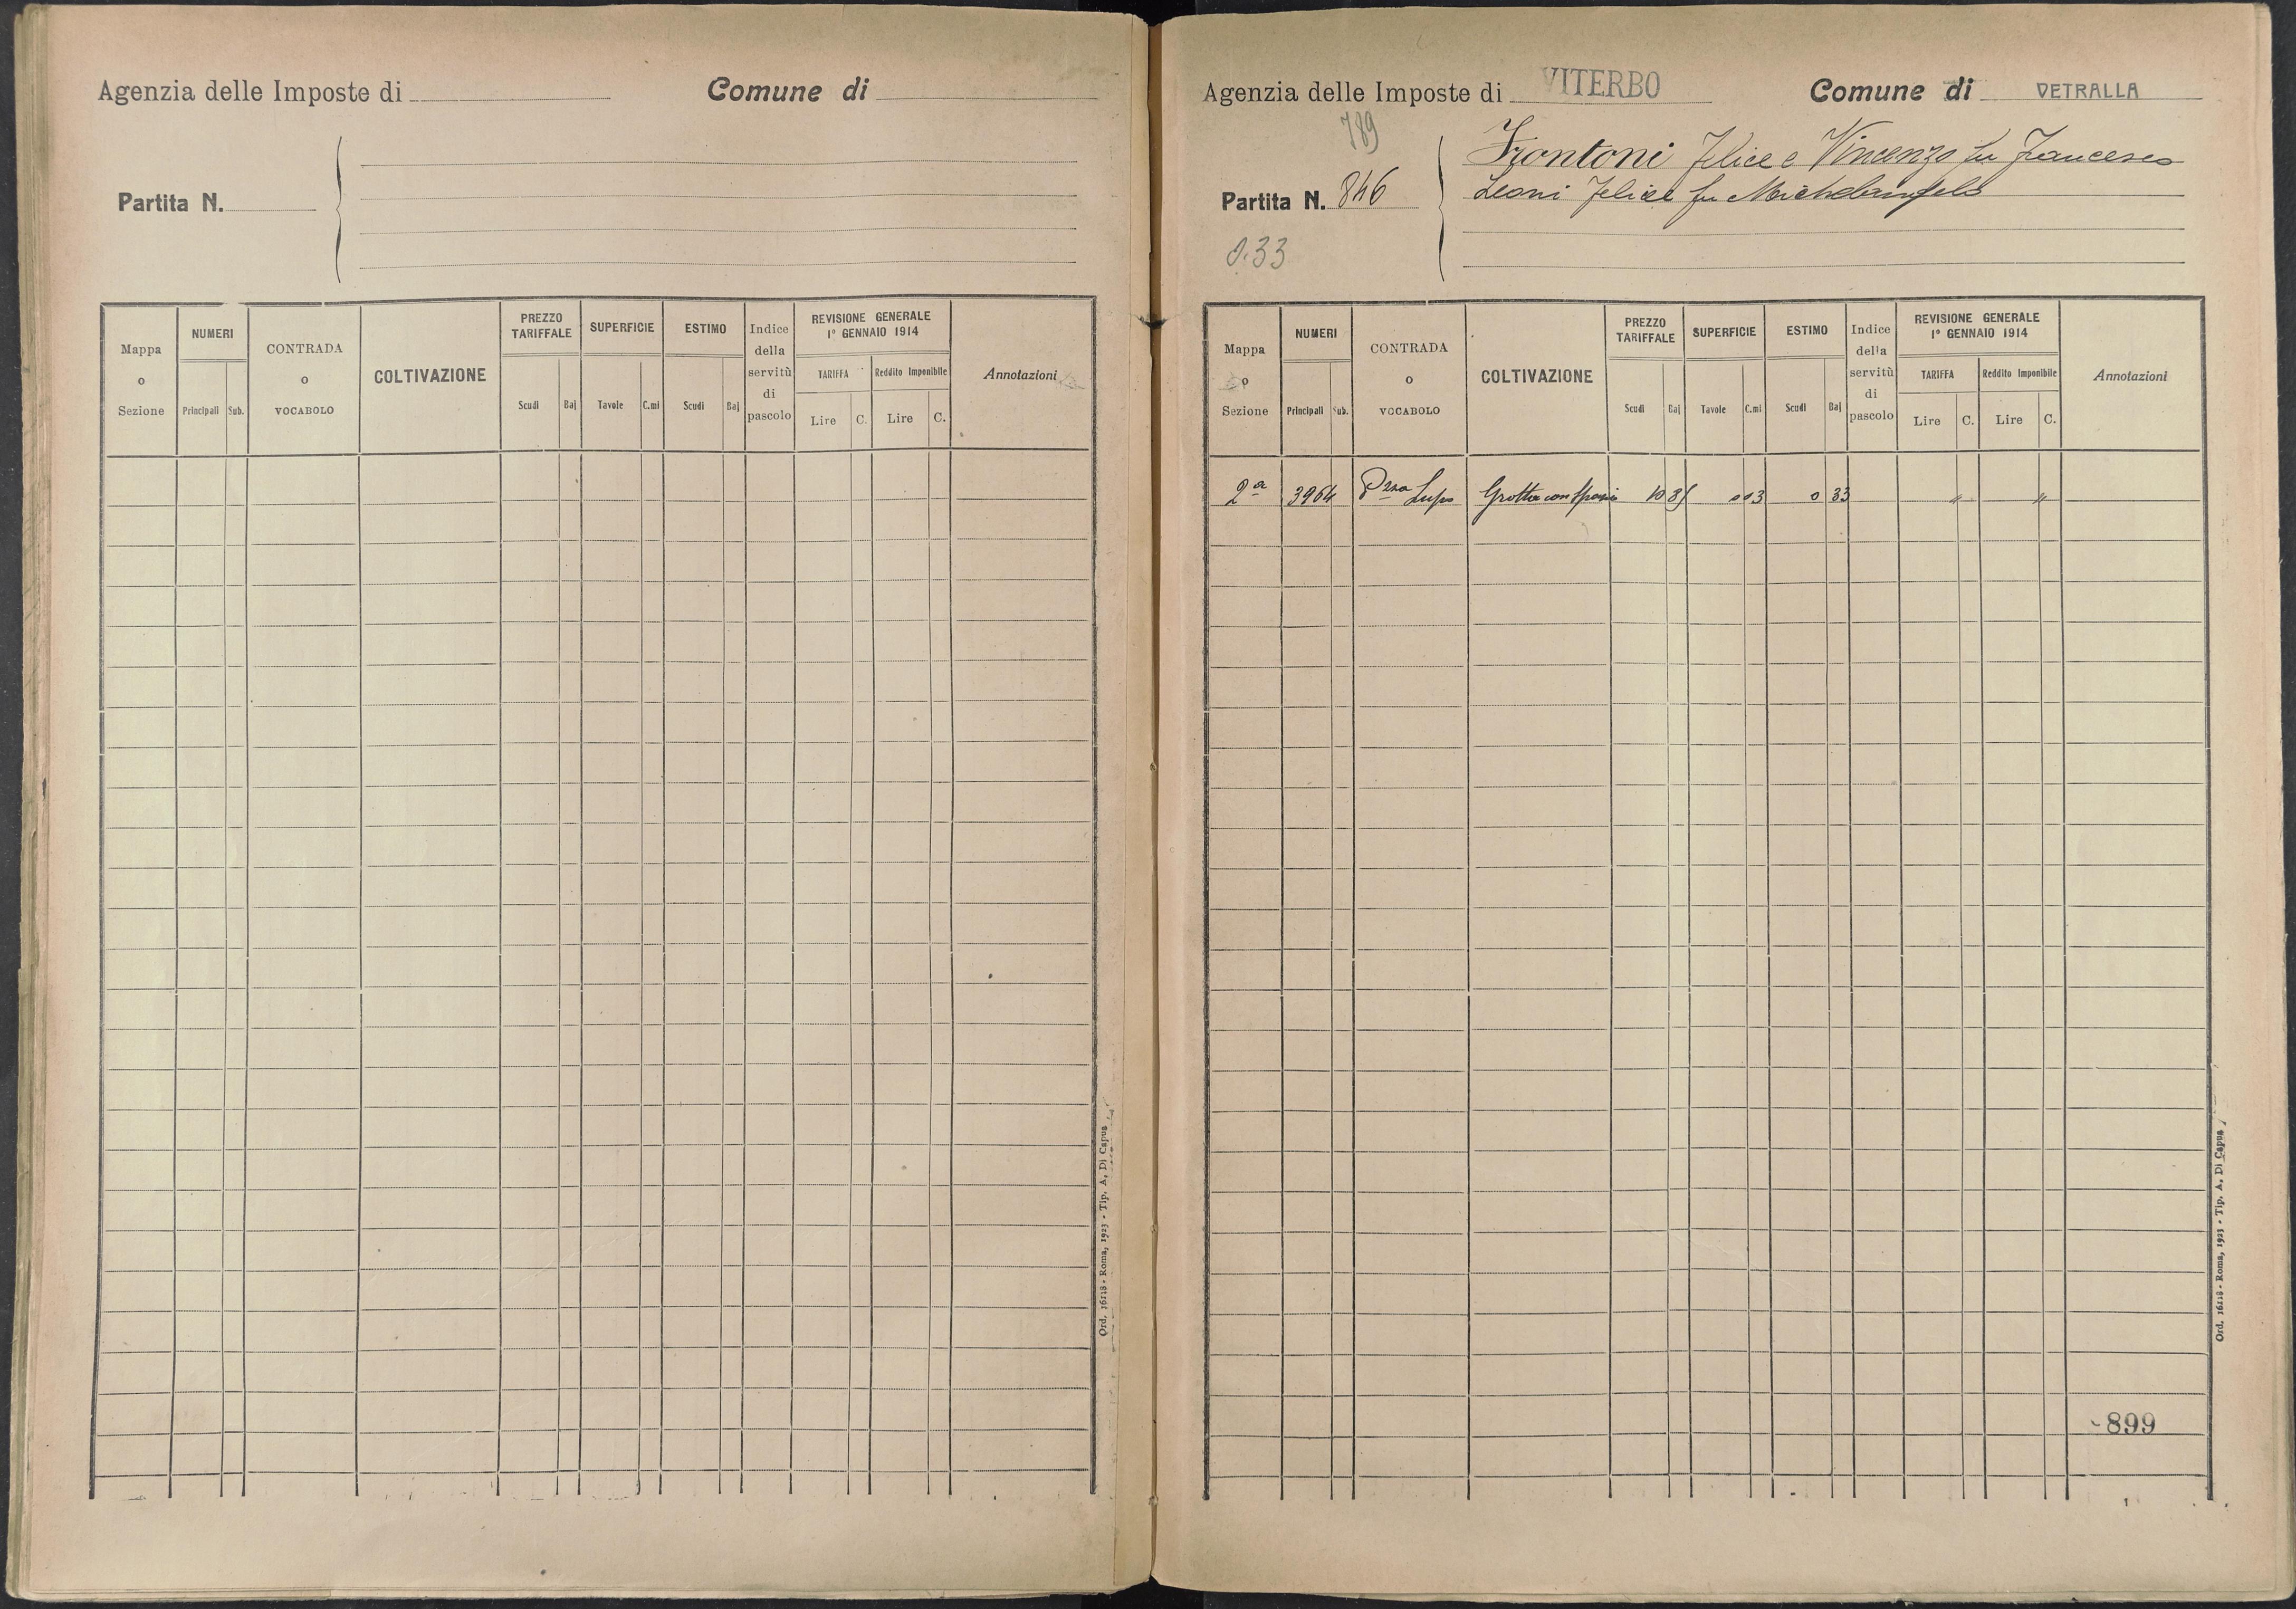 Agenzia delle Imposte di
Comune di
Partita N.
Mappa o Sezione
NUMERI
Principali
Sub.
CONTRADA o VOCABOLO
COLTIVAZIONE
PREZZO TARIFFALE
Scudi
Baj
SUPERFICIE
Tavole
C.mi
ESTIMO
Scudi
Baj
Indice della servitù di pascolo
REVISIONE GENERALE
1° GENNAIO 1914
TARIFFA
Lire
C.
Reddito Imponibile
Lire
C.
Annotazioni
Ord. 16118 - Roma, 1923 - Tip. A. Di Capua
Agenzia delle Imposte di VITERBO
Comune di VETRALLA
789
Partita N. 846
0.33
Frontoni Felice e Vincenzo fu Francesco
Leoni Felice fu Michelangelo
Mappa o Sezione
NUMERI
Principali
Sub.
CONTRADA o VOCABOLO
COLTIVAZIONE
PREZZO TARIFFALE
Scudi
Baj
SUPERFICIE
Tavole
C.mi
ESTIMO
Scudi
Baj
Indice della servitù di pascolo
REVISIONE GENERALE
1° GENNAIO 1914
TARIFFA
Lire
C.
Reddito Imponibile
Lire
C.
Annotazioni
2ª 3964 Lupo Grotta con 10 85 0 03 0 33 " "
899
Ord. 16118 - Roma, 1923 - Tip. A. Di Capua